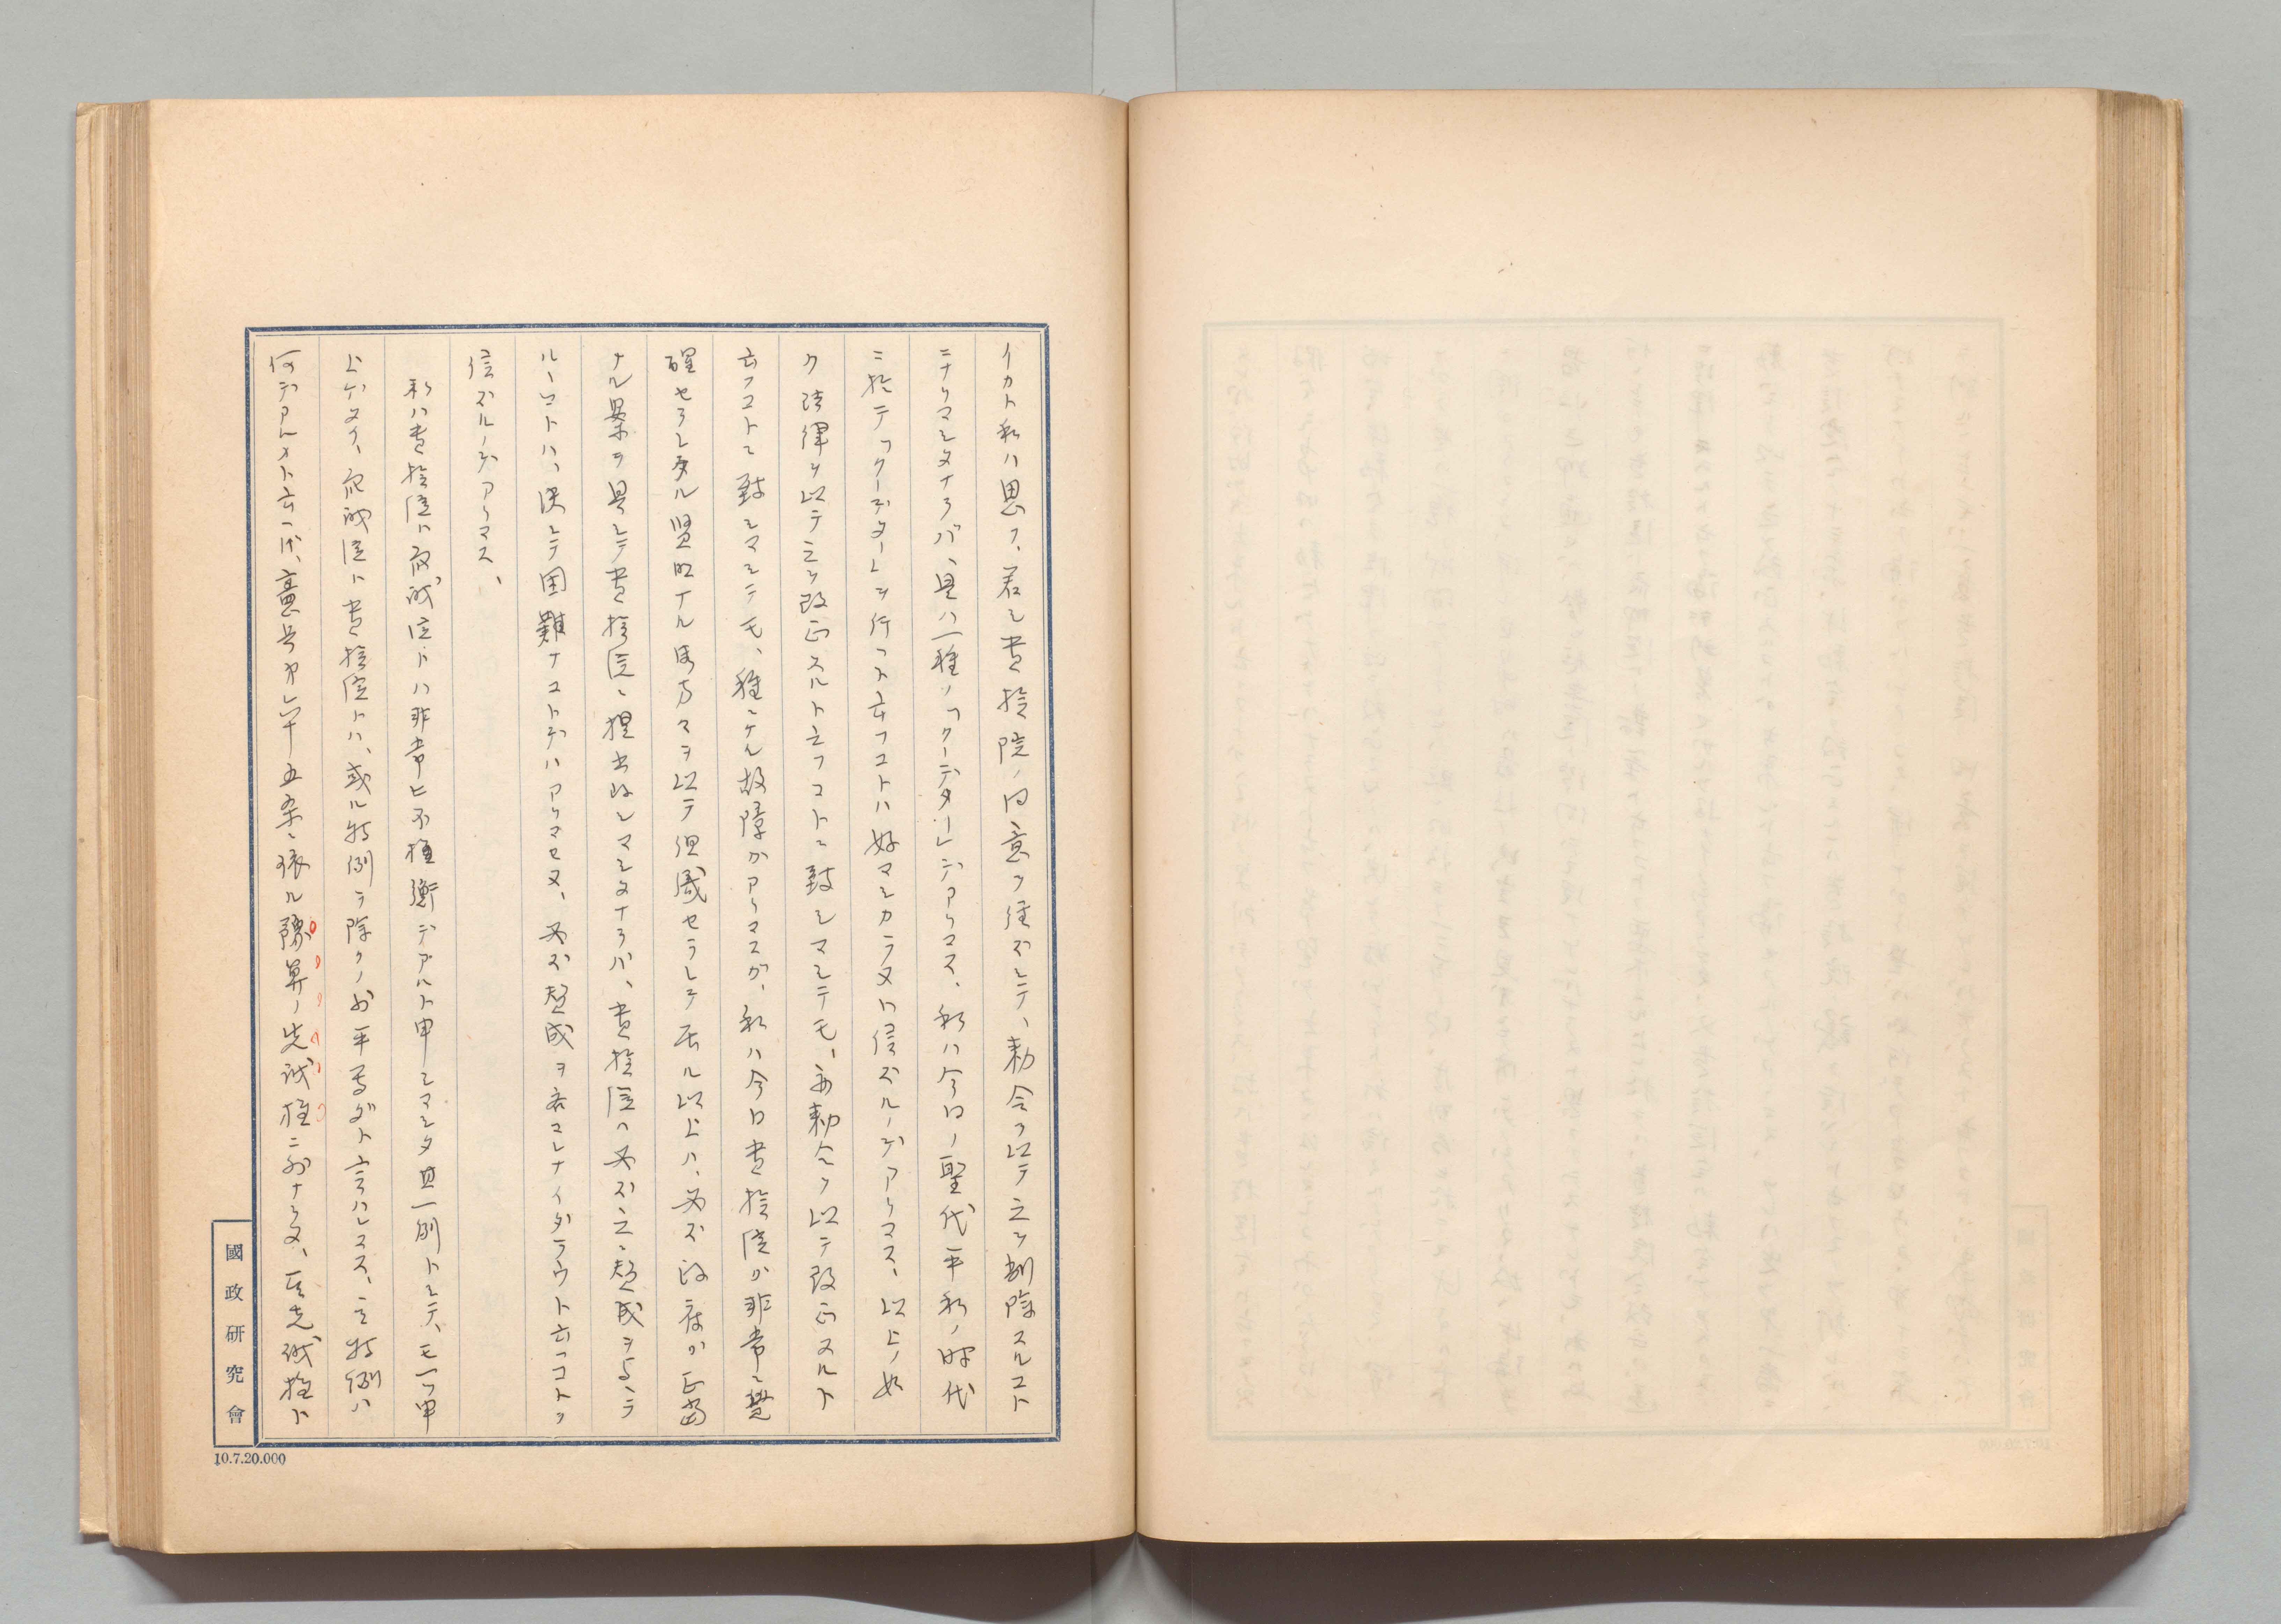 イカト私ハ思フ、若シ貴族院ノ同意ヲ経ズシテ、勅令ヲ以テ之ヲ削除スルコト
ニナリマシタナラバ、是ハ一種ノクーデターデアリマス、私ハ今日ノ聖代平和ノ時代
ニ於テクーデターヲ行フト云フコトハ好マシカラヌト信ズルノデアリマス、以上ノ如
ク法律ヲ以テ之ヲ改正スルト云フコトニ致シマシテモ、勅令ヲ以テ改正スルト
云フコトニ致シマシテモ、種々ナル故障ガアリマスガ、私ハ今日貴族院ガ非常ニ覺
醒セラレタル賢明ナル諸方々ヲ以テ組織セラレテ居ル以上ハ、必ズ政府ガ正當
ナル案ヲ具シテ貴族院ニ提出致シマシタナラバ、貴族院ハ必ズ之ニ賛成ヲ与ヘテ
ルコトハ、決シテ困難ナコトデハアリマセヌ、必ズ賛成ヲ吝マレナイダラウト云フコトヲ
信ズルノデアリマス、
私ハ貴族院ト衆議院トハ非常ニ不權衡デアルト申シマシタ其一例トシテ、モ一ツ申
上ゲタイ、衆議院ト貴族院トハ、或ル特例ヲ除クノ外平等ダト言ハレマス、其特例ハ
何デアルカト云ヘバ、憲法第六十五条ニ依ル豫算ノ先議權ニ外ナラヌ、其先議權ト
國政研究會
10.7.20.000